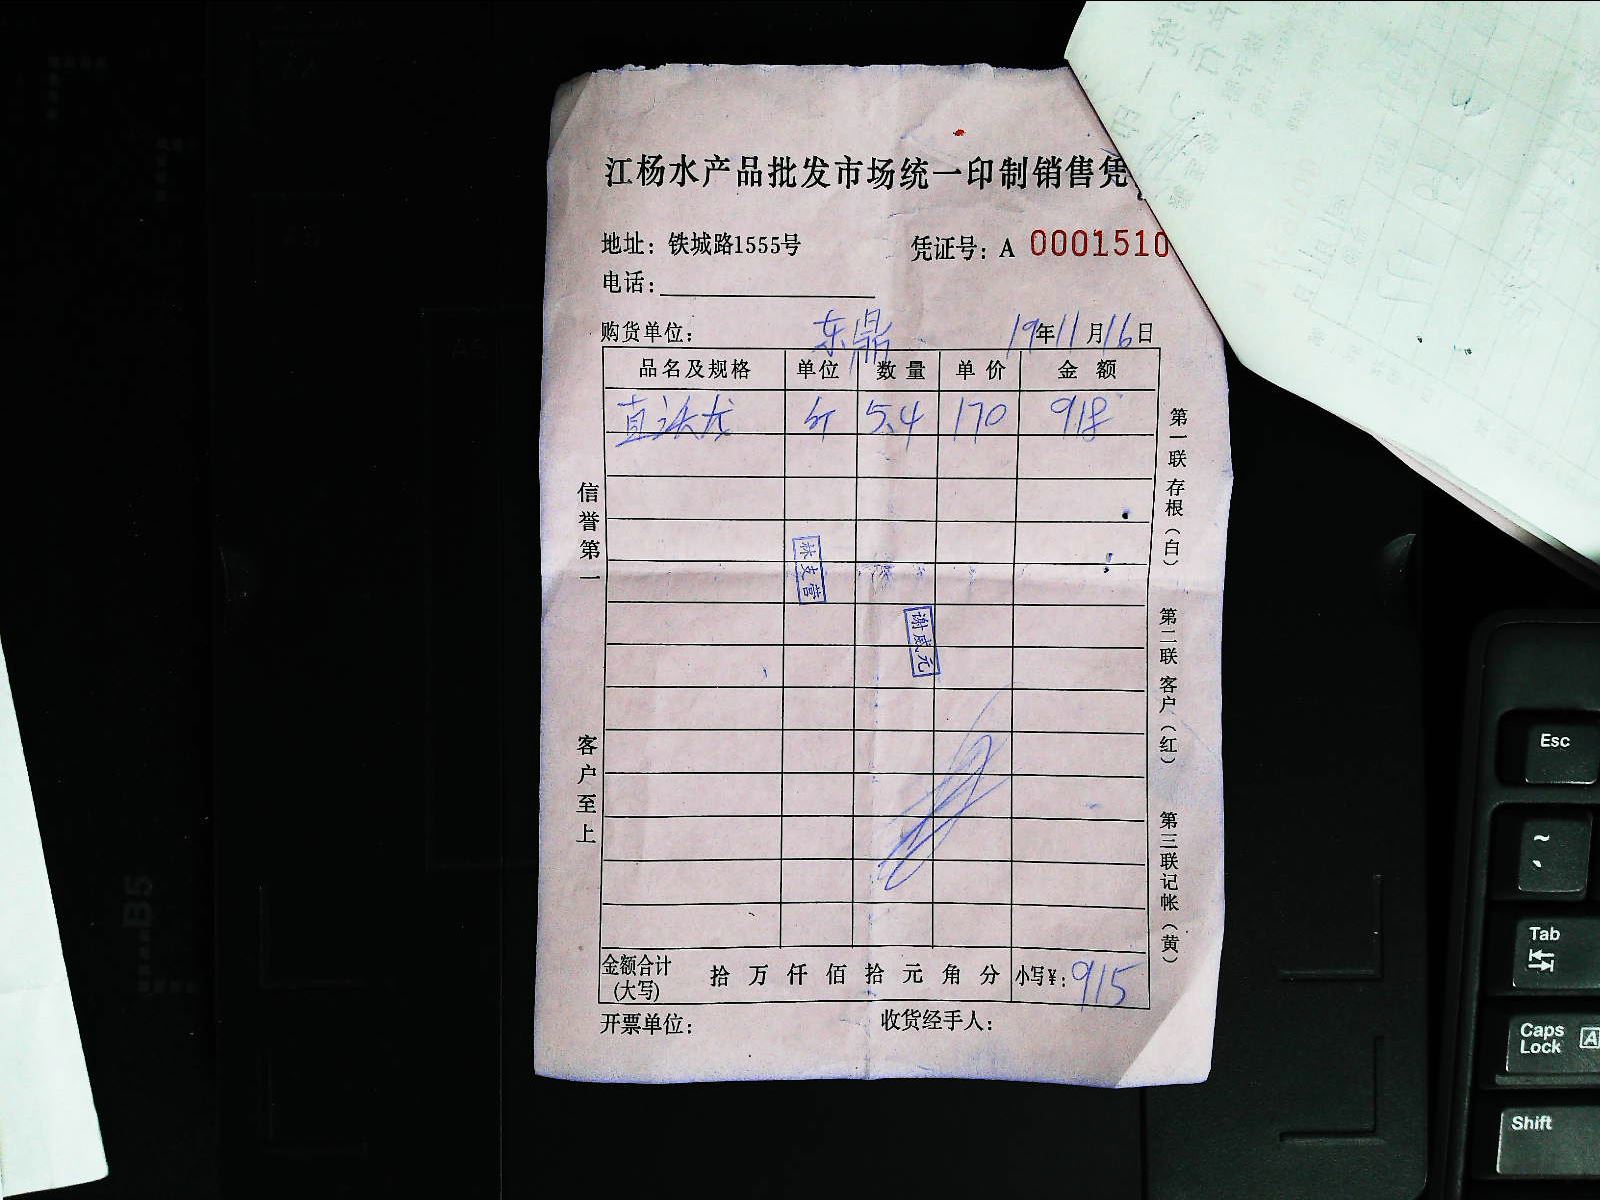 江杨水产品批发市场统一印制销售凭
地址：铁城路1555号
凭证号：A 0001510
电话：
购货单位：东鼎
19年11月16日
品名及规格 单位 数量 单价 金额
直头龙 斤 5.4 170 918
信誉第一
客户至上
第一联 存根（白）
第二联 客户（红）
第三联 记帐（黄）
谢咸元
金额合计（大写） 拾 万 仟 佰 拾 元 角 分 小写¥：915
开票单位： 收货经手人：
B5
Esc
~
Tab
Caps Lock
A
Shift